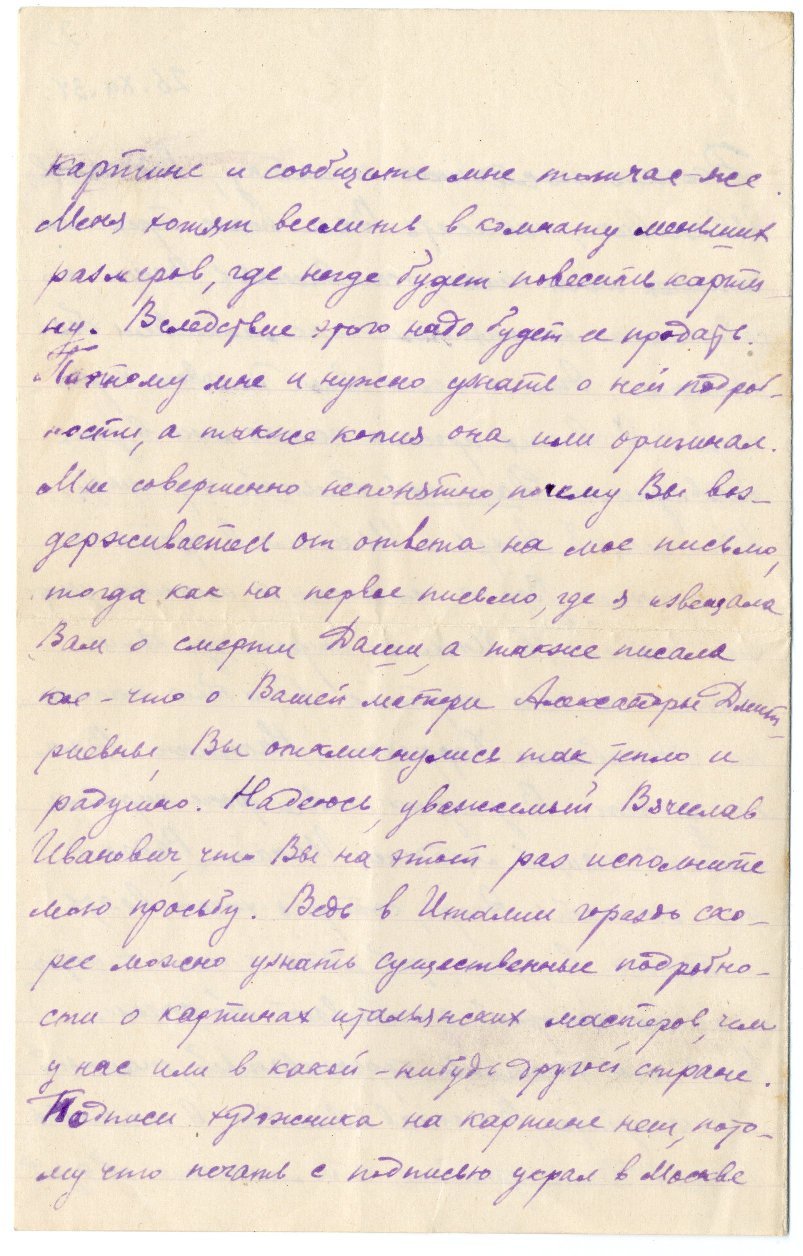 картине и сообщите мне тотчас-же
Меня хотят вселить в комнату меньших
размеров, где негде будет повесить карти-
ну. Вследствие этого надо будет ее продать.
Поэтому мне и нужно узнать о ней подроб-
ности, а также копия она или оригинал.
Мне совершенно непонятно, почему Вы воз-
держиваетесь от ответа на мое письмо,
тогда как на первое письмо, где я извещала
Вам о смерти Даши, а также писала
кое-что о Вашей матери Александры Дмит-
риевны, Вы откликнулись так тепло и
радушно. Надеюсь, уважаемый Вячеслав
Иванович, что Вы на этот раз исполните
мою просьбу. Ведь в Италии гораздо ско-
рее можно узнать существенные подробно-
сти о картинах итальянских мастеров, чем
у нас или в какой-нибудь другой стране.
Подписи художника на картине нет, пото-
му что печать с подписью украл в Москве